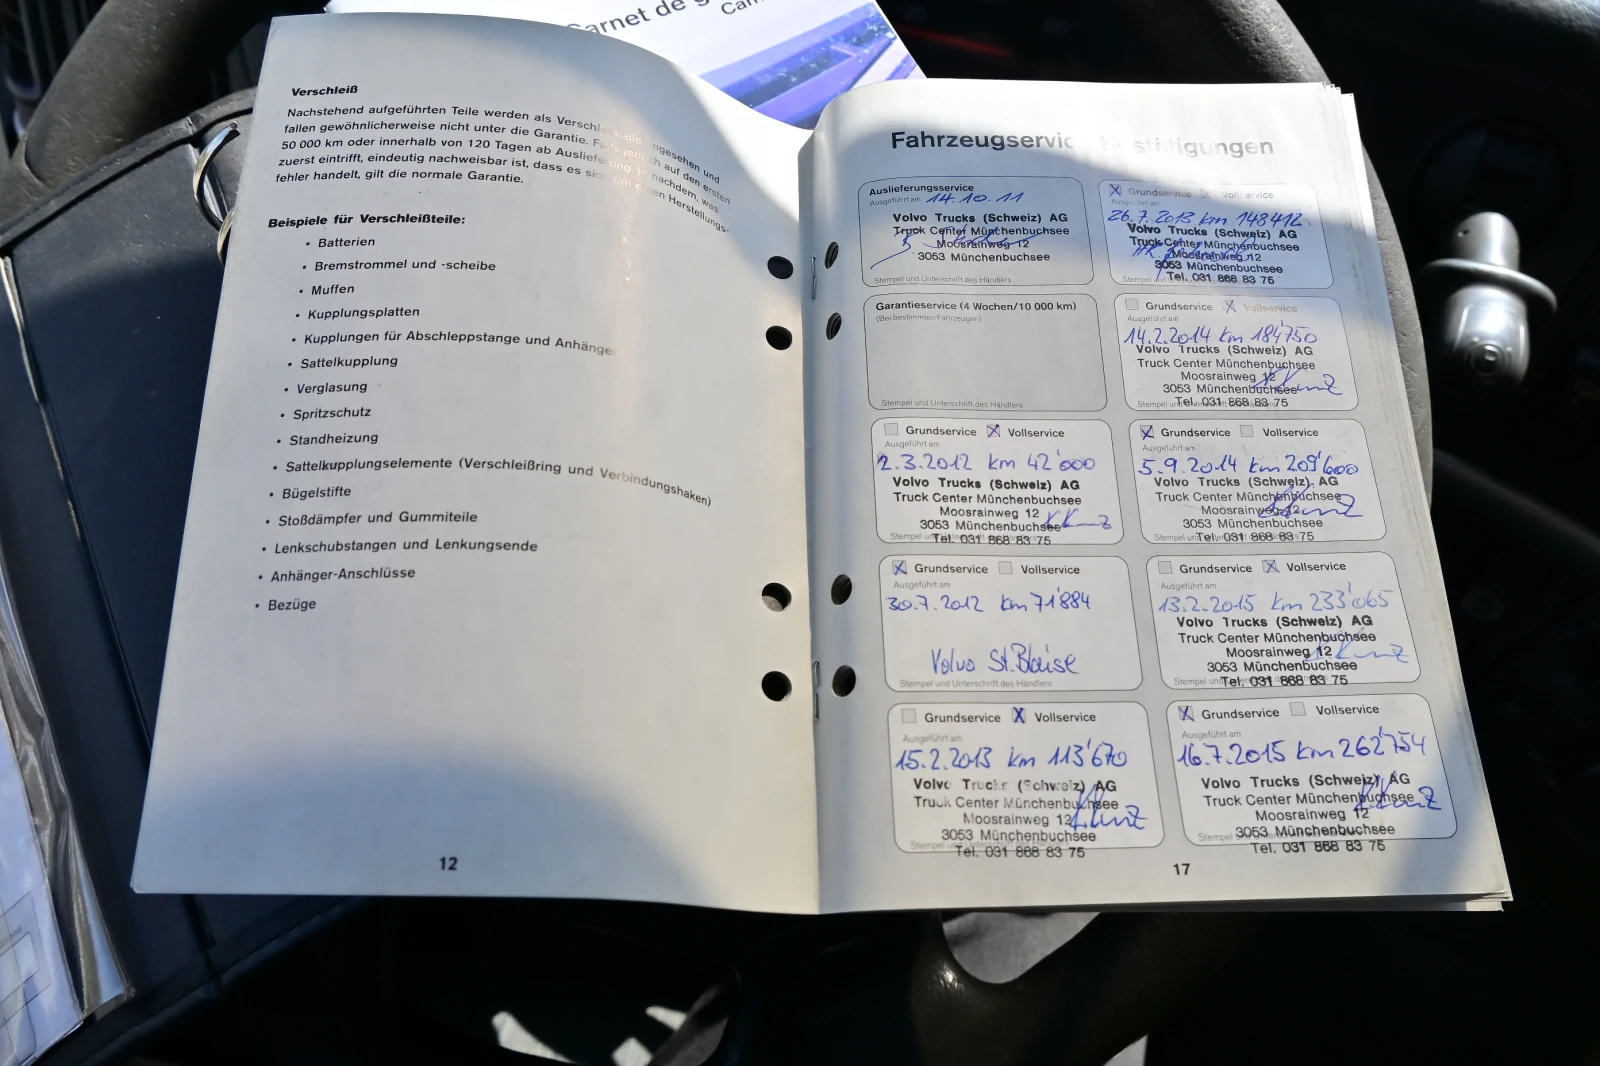 Carnet de
Verschleiß
Nachstehend aufgeführten Teile werden als Verschleißteile angesehen und
fallen gewöhnlicherweise nicht unter die Garantie. Falls jedoch auf den ersten
50 000 km oder innerhalb von 120 Tagen ab Auslieferung, je nachdem, was
zuerst eintrifft, eindeutig nachweisbar ist, dass es sich um einen Herstellungs-
fehler handelt, gilt die normale Garantie.
Beispiele für Verschleißteile:
• Batterien
• Bremstrommel und -scheibe
• Muffen
• Kupplungsplatten
• Kupplungen für Abschleppstange und Anhänger
• Sattelkupplung
• Verglasung
• Spritzschutz
• Standheizung
• Sattelkupplungselemente (Verschleißring und Verbindungshaken)
• Bügelstifte
• Stoßdämpfer und Gummiteile
• Lenkschubstangen und Lenkungsende
• Anhänger-Anschlüsse
• Bezüge
12
Fahrzeugservice Bestätigungen
Auslieferungsservice
Ausgeführt am 14.10.11
Volvo Trucks (Schweiz) AG
Truck Center Münchenbuchsee
Moosrainweg 12
3053 Münchenbuchsee
Stempel und Unterschrift des Händlers
Garantieservice (4 Wochen/10 000 km)
(Bei bestimmten Fahrzeugen)
Stempel und Unterschrift des Händlers
Grundservice X Vollservice
Ausgeführt am
2.3.2012 km 42'000
Volvo Trucks (Schweiz) AG
Truck Center Münchenbuchsee
Moosrainweg 12
3053 Münchenbuchsee K.Kunz
Tel. 031 868 83 75
X Grundservice Vollservice
Ausgeführt am
30.7.2012 km 71'884
Volvo St.Blaise
Stempel und Unterschrift des Händlers
Grundservice X Vollservice
Ausgeführt am
15.2.2013 km 113'670
Volvo Trucks (Schweiz) AG
Truck Center Münchenbuchsee
Moosrainweg 12 K.Kunz
3053 Münchenbuchsee
Tel. 031 868 83 75
X Grundservice Vollservice
Ausgeführt am
26.7.2013 km 148412
Volvo Trucks (Schweiz) AG
Truck Center Münchenbuchsee
Moosrainweg 12
3053 Münchenbuchsee
Tel. 031 868 83 75
Grundservice X Vollservice
Ausgeführt am
14.2.2014 km 184'750
Volvo Trucks (Schweiz) AG
Truck Center Münchenbuchsee
Moosrainweg 12 K.Kunz
3053 Münchenbuchsee
Tel. 031 868 83 75
X Grundservice Vollservice
Ausgeführt am
5.9.2014 km 209'600
Volvo Trucks (Schweiz) AG
Truck Center Münchenbuchsee
Moosrainweg 12 K.Kunz
3053 Münchenbuchsee
Tel. 031 868 83 75
Grundservice X Vollservice
Ausgeführt am
13.2.2015 km 233'065
Volvo Trucks (Schweiz) AG
Truck Center Münchenbuchsee
Moosrainweg 12 K.Kunz
3053 Münchenbuchsee
Tel. 031 868 83 75
X Grundservice Vollservice
Ausgeführt am
16.7.2015 km 262'754
Volvo Trucks (Schweiz) AG
Truck Center Münchenbuchsee K.Kunz
Moosrainweg 12
3053 Münchenbuchsee
Tel. 031 868 83 75
17